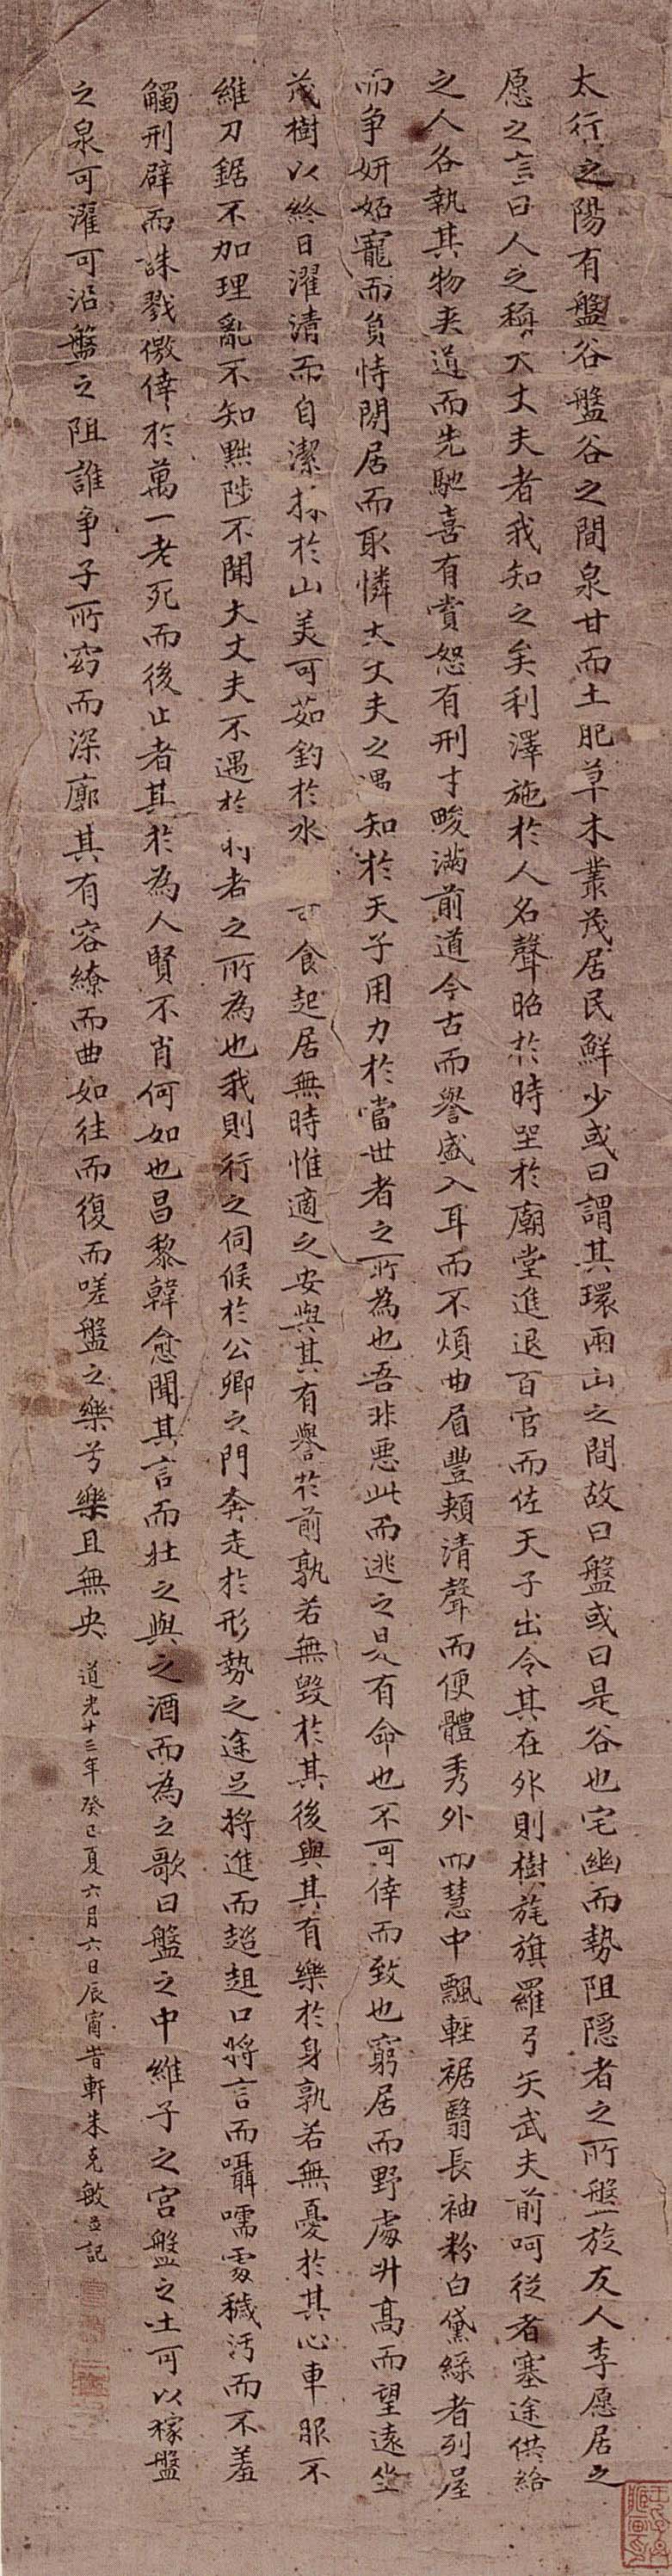 太行之陽有盤谷盤谷之間泉甘而土肥草木叢茂居民鮮少或曰謂其環兩山之間故曰盤或曰是谷也宅幽而勢阻隱者之所盤旋友人李愿居之
愿之言曰人之稱大丈夫者我知之矣利澤施於人名聲昭於時坐於廟堂進退百官而佐天子出令其在外則樹旄旗羅弓矢武夫前呵從者塞途供給
之人各執其物夾道而先馳喜有賞怒有刑才畯滿前道今古而譽盛入耳而不煩曲眉豐頰清聲而便體秀外而慧中飄輕裾翳長袖粉白黛綠者列屋
而爭妍妬寵而負恃閒居而取憐大丈夫之遇知於天子用力於當世者之所為也吾非惡此而逃之是有命也不可倖而致也窮居而野處升高而望遠坐
茂樹以終日濯清而自潔採於山美可茹釣於水可食起居無時惟適之安與其有譽於前孰若無毀於其後與其有樂於身孰若無憂於其心車服不
維刀鋸不加理亂不知黜陟不聞大丈夫不遇於利者之所為也我則行之伺候於公卿之門奔走於形勢之途足將進而趦趄口將言而囁嚅處穢污而不羞
觸刑辟而誅戮儌倖於萬一老死而後止者其於為人賢不肖何如也昌黎韓愈聞其言而壯之與之酒而為之歌曰盤之中維子之宮盤之土可以稼盤
之泉可濯可沿盤之阻誰爭子所窈而深廓其有容繚而曲如往而復而嗟盤之樂兮樂且無央
道光十三年癸巳夏六月六日辰甯昔軒朱克敏並記